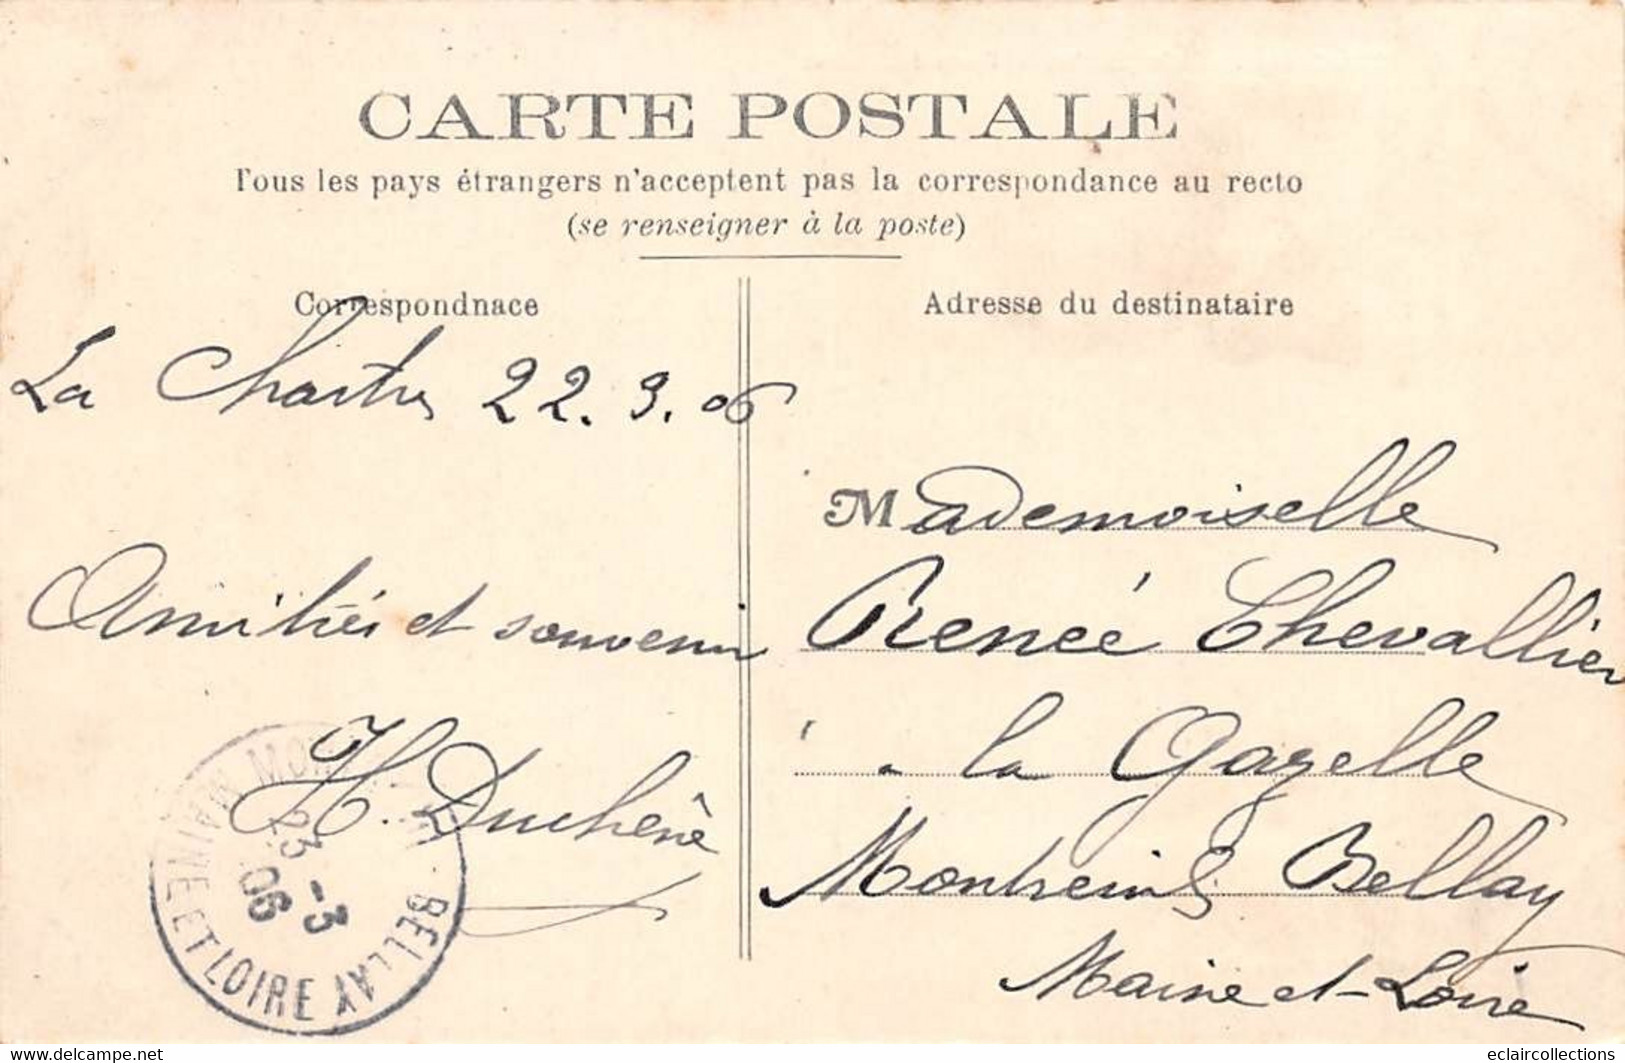 CARTE POSTALE
Tous les pays étrangers n'acceptent pas la correspondance au recto
(se renseigner à la poste)
Correspondnace
La Chartre 22.3.06
Amitiés et souvenir
H. Duchêne
Adresse du destinataire
Mademoiselle
Renée Chevallier
à la Gazelle
Montreuil Bellay
Maine et-Loire
MONTREUIL-BELLAY
23 -3
06
MAINE ET LOIRE
www.delcampe.net
eclaircollections